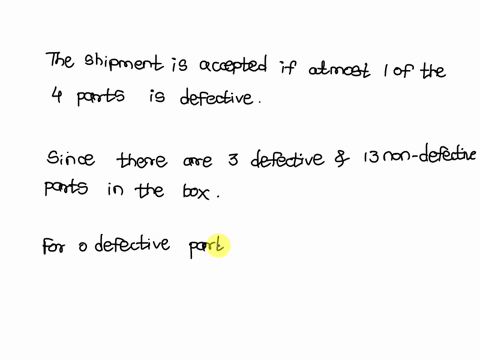 The shipment is accepted if atmost 1 of the
4 parts is defective.
Since there are 3 defective & 13 non-defective
parts in the box.
For 0 defective part